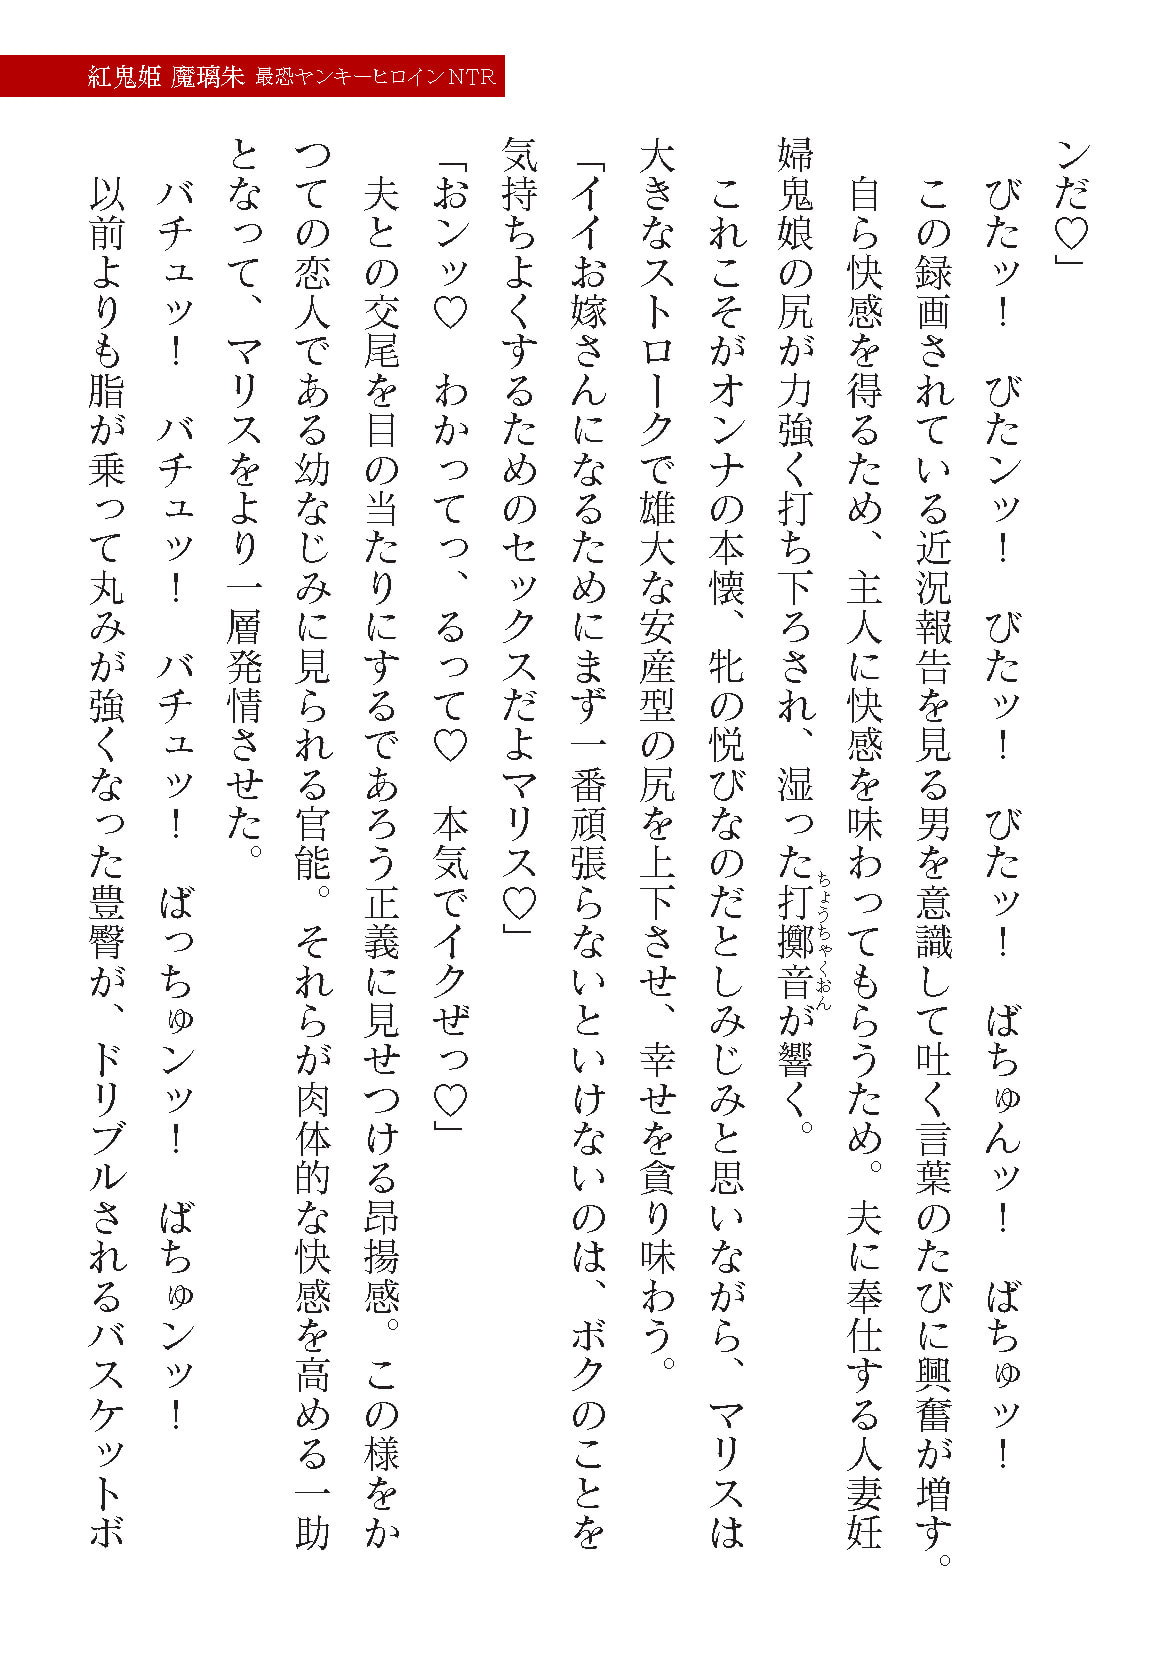 紅鬼姫 魔璃朱 最恐ヤンキーヒロインNTR
ンだ♡」
　びたッ！　びたンッ！　びたッ！　びたッ！　ばちゅんッ！　ばちゅッ！
　この録画されている近況報告を見る男を意識して吐く言葉のたびに興奮が増す。
　自ら快感を得るため、主人に快感を味わってもらうため。夫に奉仕する人妻妊
婦鬼娘の尻が力強く打ち下ろされ、湿った打擲音が響く。
ちょうちゃくおん
　これこそがオンナの本懐、牝の悦びなのだとしみじみと思いながら、マリスは
大きなストロークで雄大な安産型の尻を上下させ、幸せを貪り味わう。
「イイお嫁さんになるためにまず一番頑張らないといけないのは、ボクのことを
気持ちよくするためのセックスだよマリス♡」
「おンッ♡　わかってっ、るって♡　本気でイクぜっ♡」
　夫との交尾を目の当たりにするであろう正義に見せつける昂揚感。この様をか
つての恋人である幼なじみに見られる官能。それらが肉体的な快感を高める一助
となって、マリスをより一層発情させた。
　バチュッ！　バチュッ！　バチュッ！　ばっちゅンッ！　ばちゅンッ！
　以前よりも脂が乗って丸みが強くなった豊臀が、ドリブルされるバスケットボ